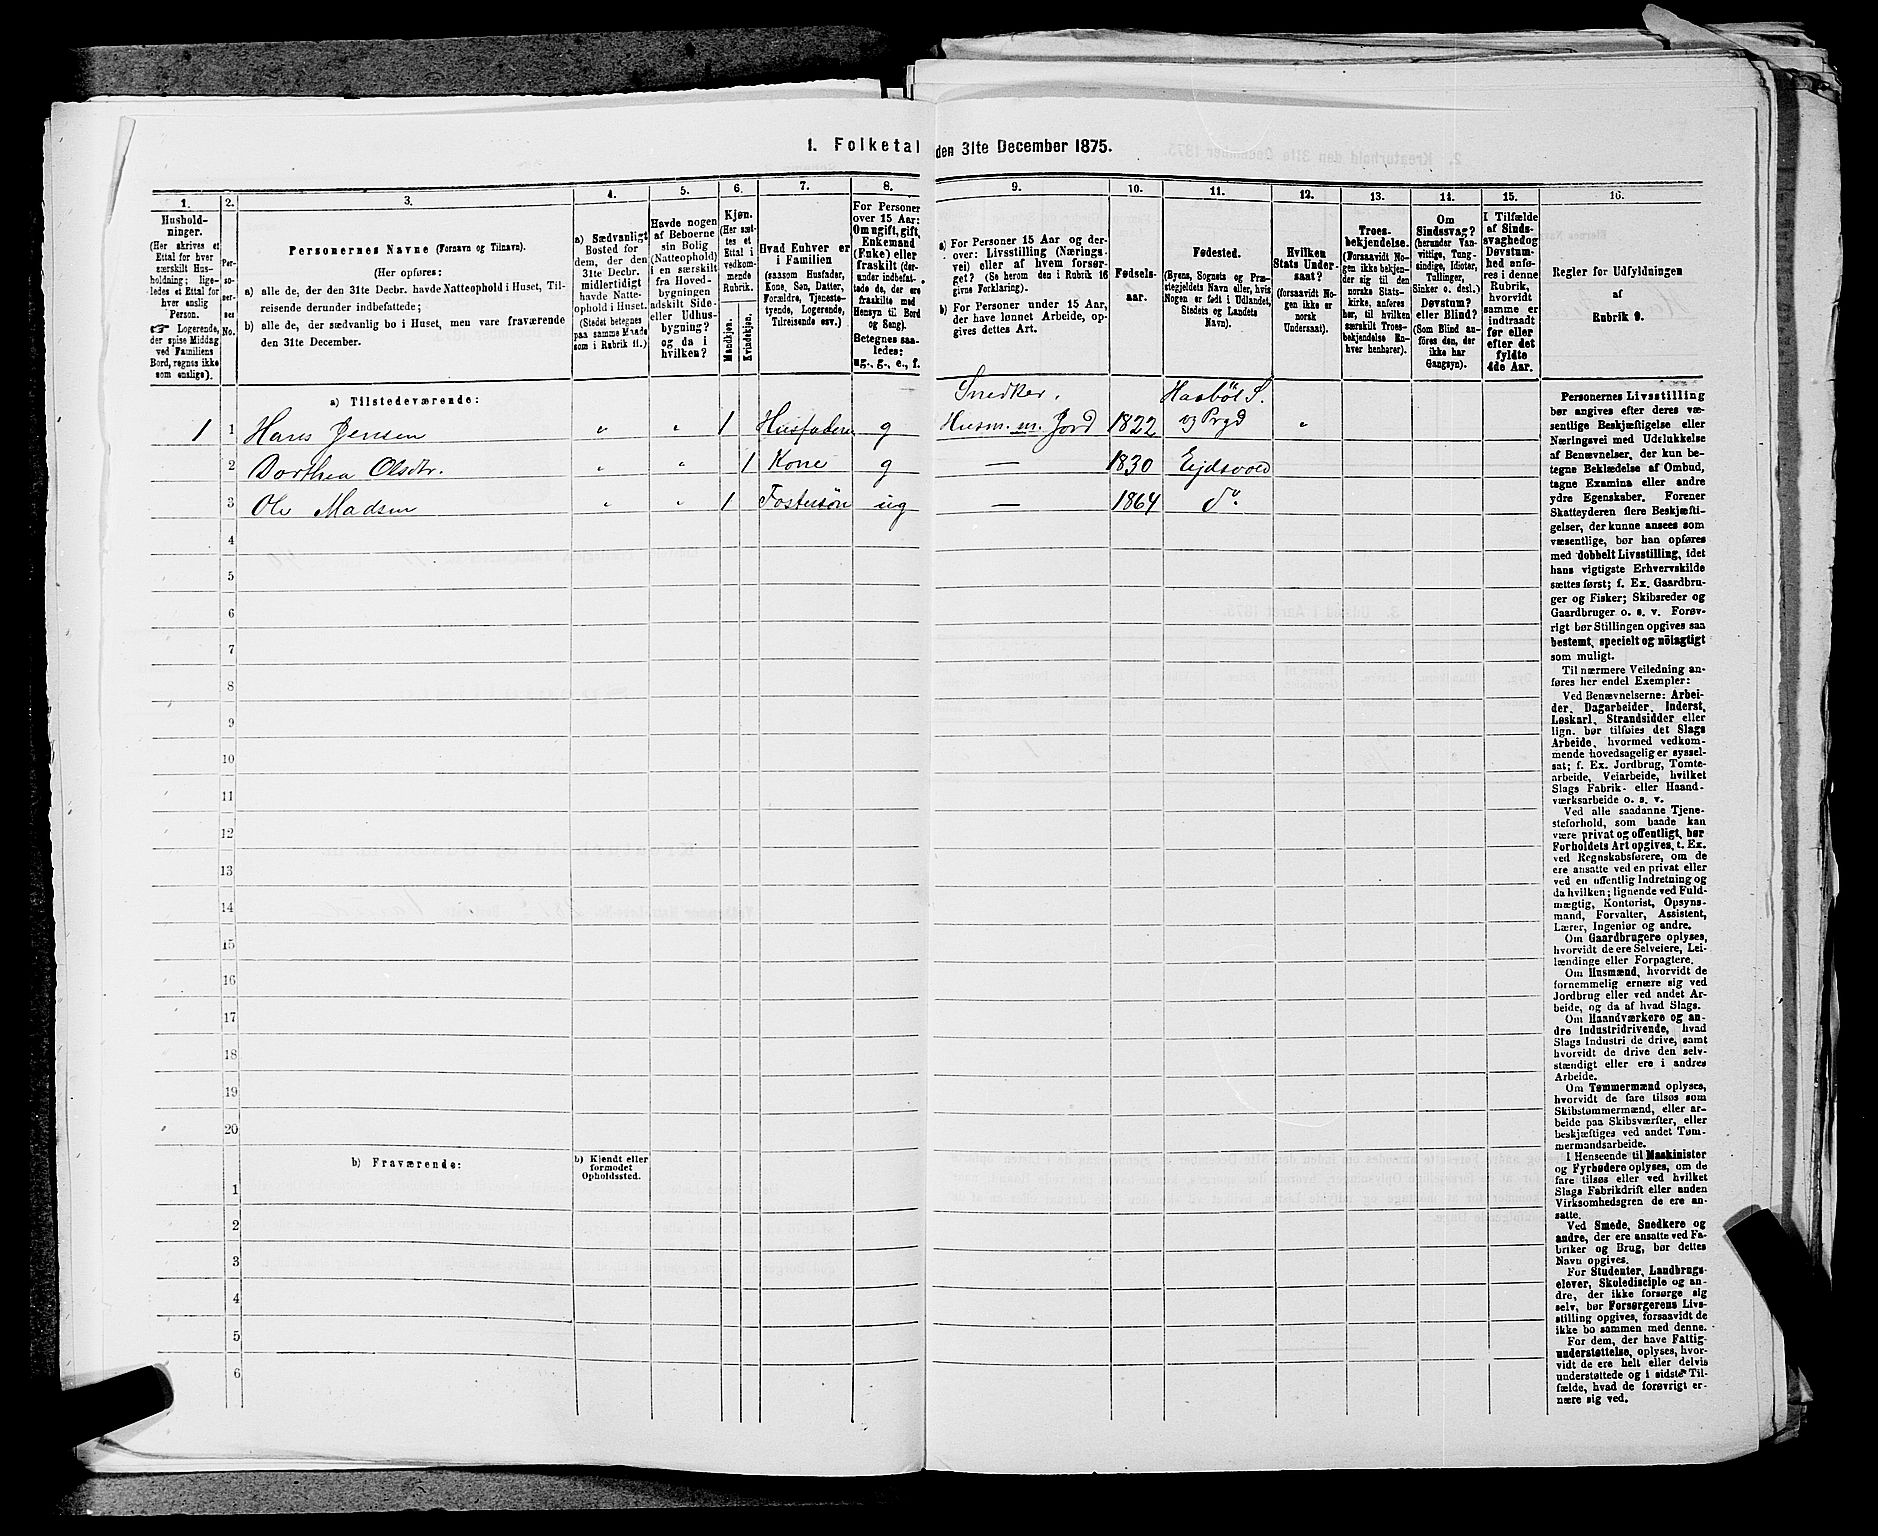 1. Folketal den 31te December 1875.
1.
2.
3.
4.
5.
6.
7.
8.
9.
10.
11.
12.
13.
14.
15.
16.
Hushold-
ninger.
(Her skrives et
Ettal for hver
særskilt Hus-
holdning; lige-
ledes et Ettal for
hver enslig
Person.
☞ Logerende,
der spise Middag
ved Familiens
Bord, regnes ikke
som enslige).
Per-
so-
ner-
nes
No.
Personernes Navne (Fornavn og Tilnavn).
(Her opføres:
a) alle de, der den 31te Decbr. havde Natteophold i Huset, Til-
reisende derunder indbefattede;
b) alle de, der sædvanlig bo i Huset, men vare fraværende
den 31te December.
a) Sædvanligt
Bosted for
dem, der den
31te Decbr.
midlertidigt
havde Natte-
ophold i Huset.
(Stedet betegnes
paa samme Maade
som i Rubrik 11.)
Havde nogen
af Beboerne
sin Bolig
(Natteophold)
i en særskilt
fra Hoved-
bygningen
adskilt Side-
eller Udhus-
bygning?
og da i
hvilken?
Kjøn.
(Her sæt-
tes et
Ettal i
vedkom-
mende
Rubrik.
Mandkjøn.
Kvindekjøn.
Hvad Enhver er
i Familien
(saasom Husfader,
Kone, Søn, Datter,
Forældre, Tjeneste-
tyende, Logerende,
Tilreisende osv.)
For Personer
over 15 Aar:
Om ugift, gift,
Enkemand
(Enke) eller
fraskilt (der-
under indbefat-
tede de, der ere
fraskilte med
Hensyn til Bord
og Seng).
Betegnes saa-
ledes:
ug., g., e., f.
a) For Personer 15 Aar og der-
over: Livsstilling (Nærings-
vei) eller af hvem forsør-
get? (Se herom den i Rubrik 16
givne Forklaring).
b) For Personer under 15 Aar,
der have lønnet Arbeide, op-
gives dettes Art.
Fødsels-
aar.
Fødested.
(Byens, Sognets og Præ-
stegjeldets Navn eller, hvis
Nogen er født i Udlandet,
Stedets og Landets
Navn).
Hvilken
Stats Under-
saat?
(forsaavidt No-
gen ikke er
norsk
Undersaat).
Troes-
bekjendelse.
(Forsaavidt No-
gen ikke bekjen-
der sig til den
norske Stats-
kirke, anføres
her, til hvilken
særskilt Troes-
bekjendelse En-
hver henhører).
Om
Sindssvag?
(herunder Van-
vittige, Tung-
sindige, Idioter,
Tullinger,
Sinker o. desl.)
Døvstum?
eller Blind?
(Som Blind an-
føres den, der
ikke har
Gangsyn).
I Tilfælde
af Sinds-
svaghed og
Døvstum-
hed anfø-
res i denne
Rubrik,
hvorvidt
samme er
indtraadt
før eller
efter det
fyldte
4de Aar.
Regler for Udfyldningen
af
Rubrik 9.
a) Tilstedeværende:
Snedker, Haabøl S.
1 1 Hans Jensen " " 1 Husfader g Husm. m. Jord 1822 og Prgd "
2 Dorthea Olsdtr. " " 1 Kone g — 1830 Eidsvold
3 Ole Madsen " " 1 Fostersøn ug — 1864 do.
4
5
6
7
8
9
10
11
12
13
14
15
16
17
18
19
20
b) Fraværende:
b) Kjendt eller
formodet
Opholdssted.
1
2
3
4
5
6
Personernes Livsstilling
bør angives efter deres væ-
sentlige Beskjæftigelse eller
Næringsvei med Udelukkelse
af Benævnelser, der kun be-
tegne Beklædelse af Ombud,
tagne Examina eller andre
ydre Egenskaber. Forener
Skatteyderen flere Beskjæfti-
gelser, der kunne ansees som
væsentlige, bør han opføres
med dobbelt Livsstilling, idet
hans vigtigste Erhvervskilde
sættes først; f. Ex. Gaardbru-
ger og Fisker; Skibsreder og
Gaardbruger o. s. v. Forøv-
rigt bør Stillingen opgives saa
bestemt, specielt og nöiagtigt
som muligt.
Til nærmere Veiledning an-
føres her endel Exempler:
Ved Benævnelserne: Arbei-
der, Dagarbeider, Inderst,
Løskarl, Strandsidder eller
lign. bør tilføies det Slags
Arbeide, hvormed vedkom-
mende hovedsagelig er syssel-
sat; f. Ex. Jordbrug, Tomte-
arbeide, Veiarbeide, hvilket
Slags Fabrik- eller Haand-
værksarbeide o. s. v.
Ved alle saadanne Tjene-
steforhold, som baade kan
være privat og offentligt, bør
Forholdets Art opgives, t. Ex.
ved Regnskabsførere, om de
ere ansatte ved en privat eller
ved en offentlig Indretning og
da hvilken; lignende ved Fuld-
mægtig, Kontorist, Opsyns-
mand, Forvalter, Assistent,
Lærer, Ingeniør og andre.
Om Gaardbrugere oplyses,
hvorvidt de ere Selveiere, Lei-
lændinge eller Forpagtere.
Om Husmænd, hvorvidt de
fornemmelig ernære sig ved
Jordbrug eller ved andet Ar-
beide, og da af hvad Slags.
Om Haandværkere og an-
dre Industridrivende, hvad
Slags Industri de drive, samt
hvorvidt de drive den selv-
stændigt eller ere i andres
Arbeide.
Om Tømmermænd oplyses,
hvorvidt de fare tilsøs som
Skibstømmermænd, eller ar-
beide paa Skibsværfter, eller
beskjæftiges ved andet Tøm-
mermandsarbeide.
I Henseende til Maskinister
og Fyrbødere oplyses, om de
fare tilsøs eller ved hvilket
Slags Fabrikdrift eller anden
Virksomhedsgren de ere an-
satte.
Ved Smede, Snedkere og
andre, der ere ansatte ved Fa-
briker og Brug, bør dettes
Navn opgives.
For Studenter, Landbrugs-
elever, Skoledisciple og an-
dre, der ikke forsørge sig
selv, bør Forsørgerens Livs-
stilling opgives, forsaavidt de
ikke bo sammen med denne.
For dem, der have Fattig-
understøttelse, oplyses, hvor-
vidt de ere helt eller delvis
understøttede og i sidste Til-
fælde, hvad de forøvrigt er-
nære sig ved.